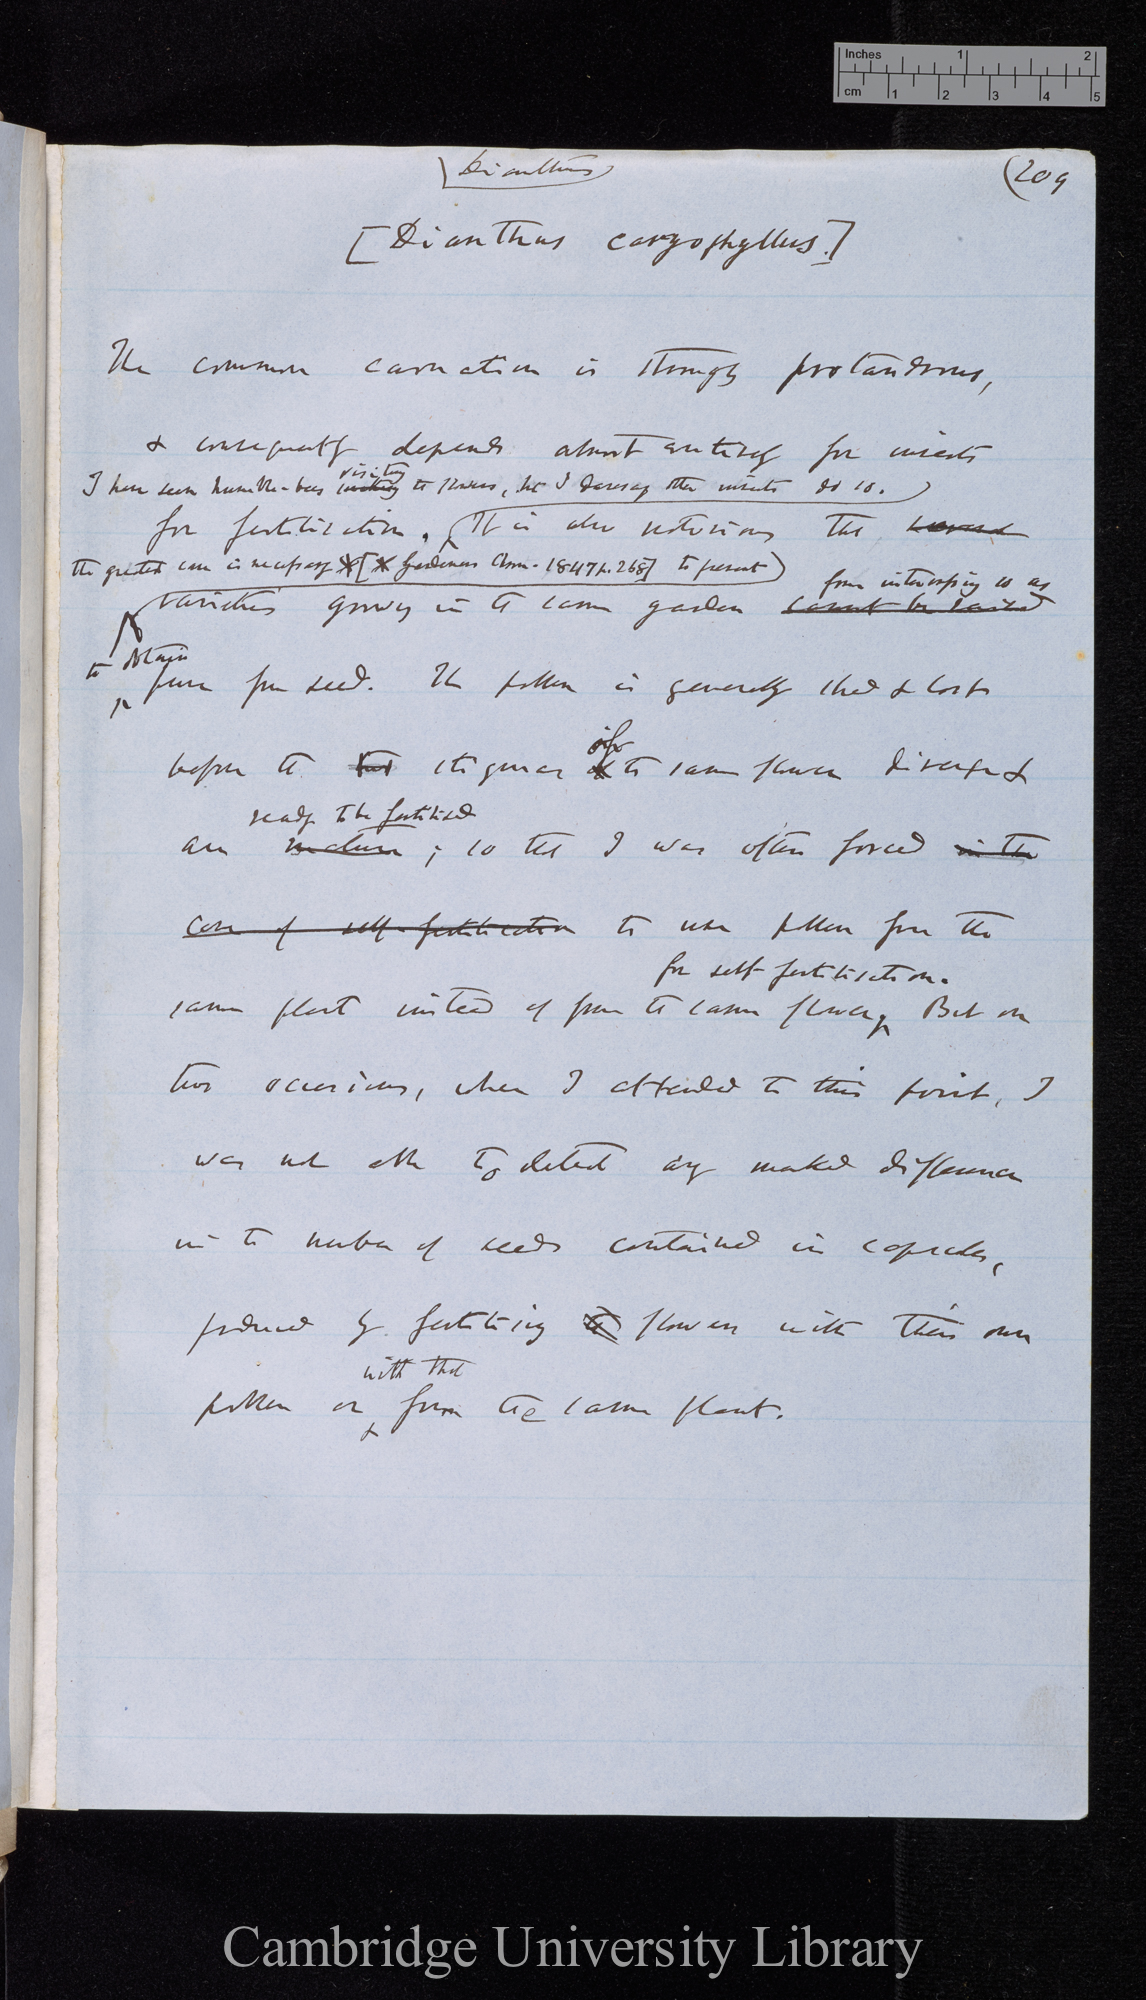 Inches 1 2
cm 1 2 3 4 5
Dianthus
(209
[Dianthus caryophyllus.]
The common carnation is strongly protandrous,
& consequently depends almost entirely for insects
visiting
I have seen humble-bees visiting the flowers, but I daresay other insects do so.
for fertilisation. It is also notorious that
the greatest care is necessary X [X Gardeners Chron. 1847 p. 268] to prevent
from intercrossing so as
varieties growing in the same garden cannot be raised
to obtain
pure from seed. The pollen is generally shed & lost
before the two stigmas of the same flower diverge &
ready to be fertilised
are mature; so that I was often forced in the
case of self-fertilisation to use pollen from the
for self-fertilisation.
same plant instead of from the same flower. But on
two occasions, when I attended to this point, I
was not able to detect any marked difference
in the number of seeds contained in capsules,
produced by fertilising the flowers with their own
with that
pollen or from the same plant.
Cambridge University Library